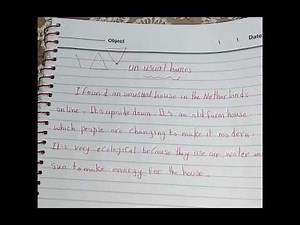 Object
Date
un usual homes
I found an unusual house in the Netherlands
online. It's upside down. It's an old farm house
which people are changing to make it modern.
It is very ecological because they use air, water an
sun to make enargy for the house.